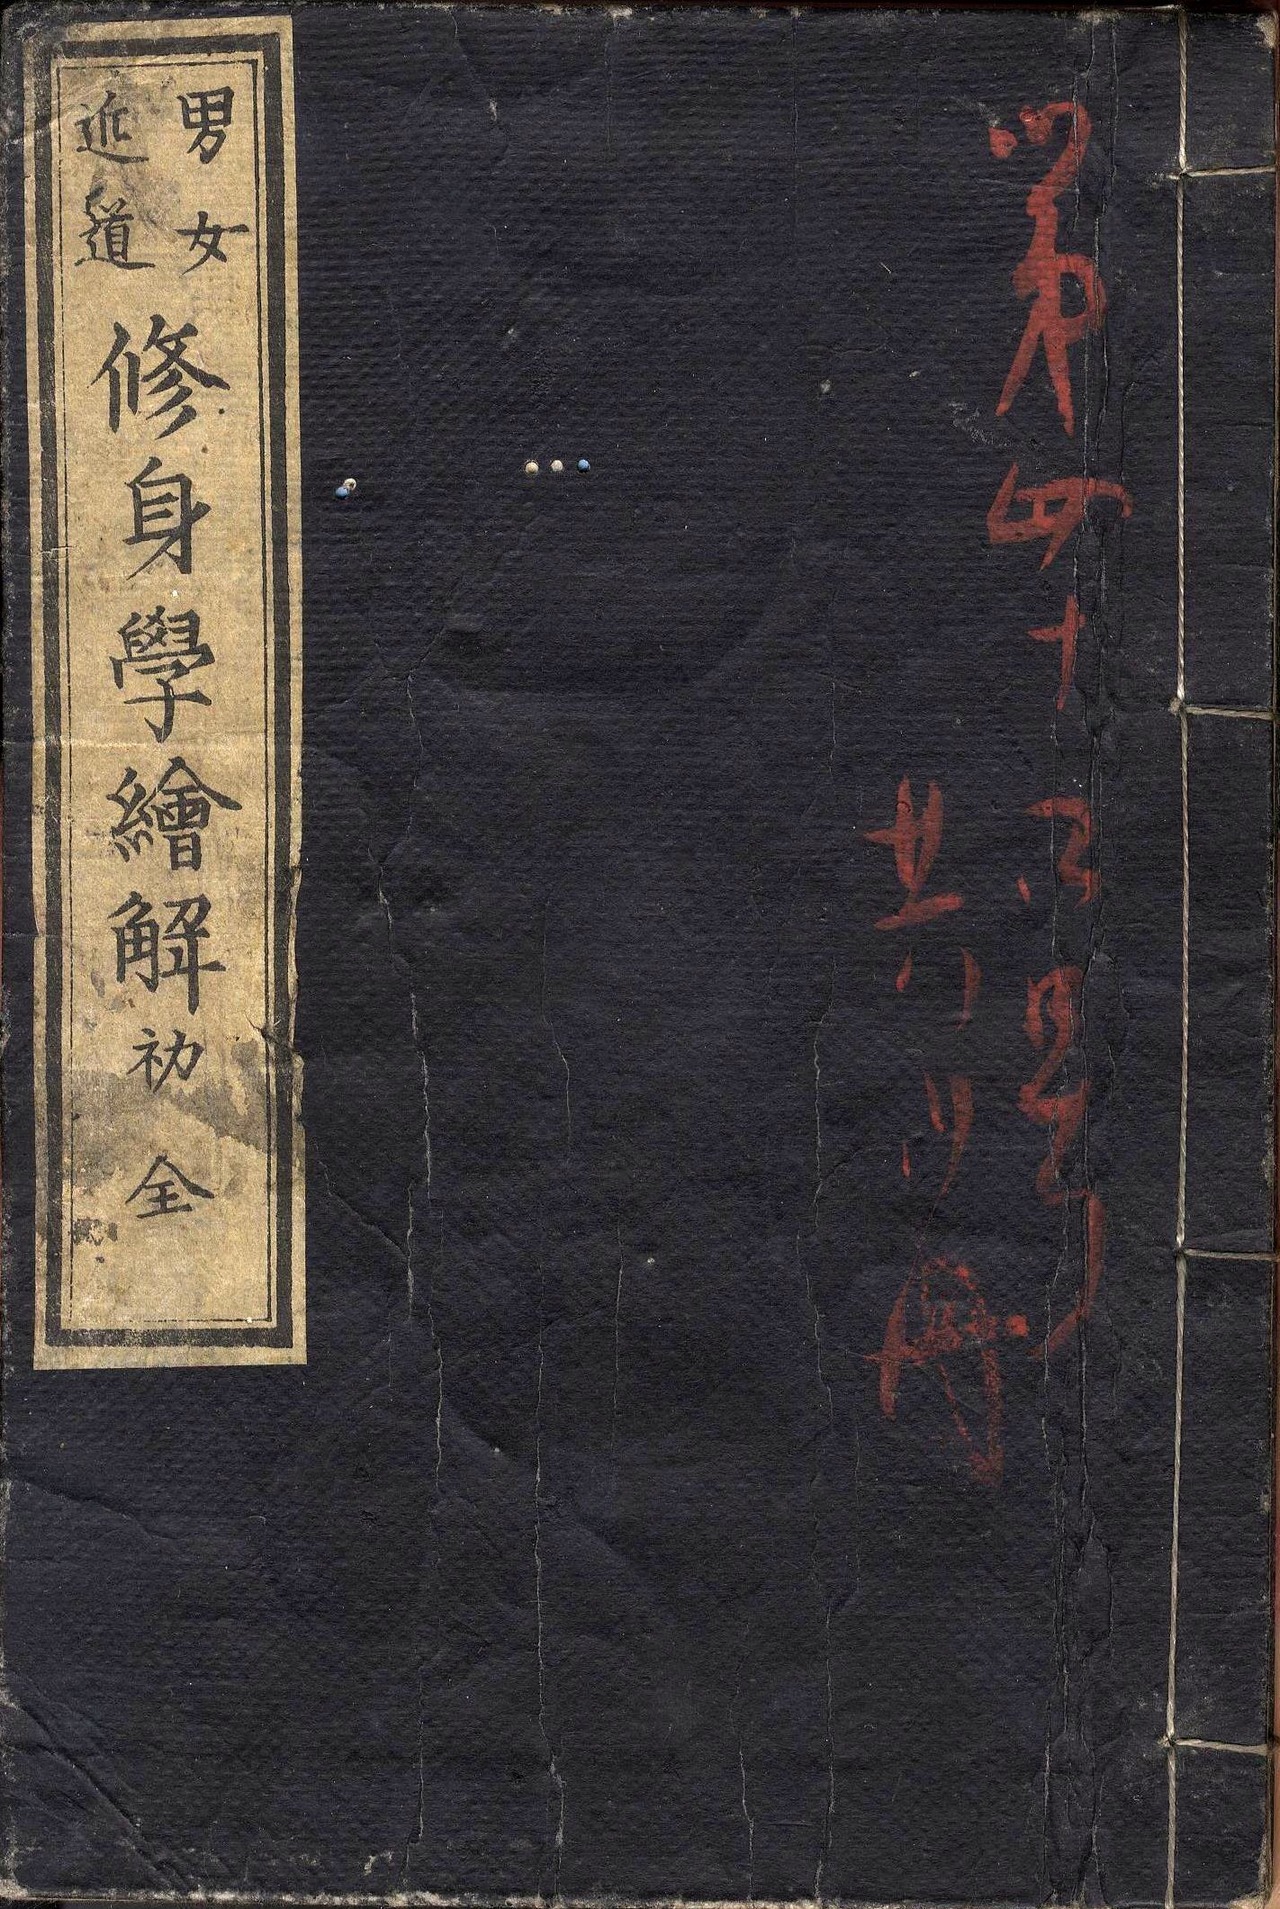 男女
近道
修身學繪解
初
全
第四十五号
共
冊